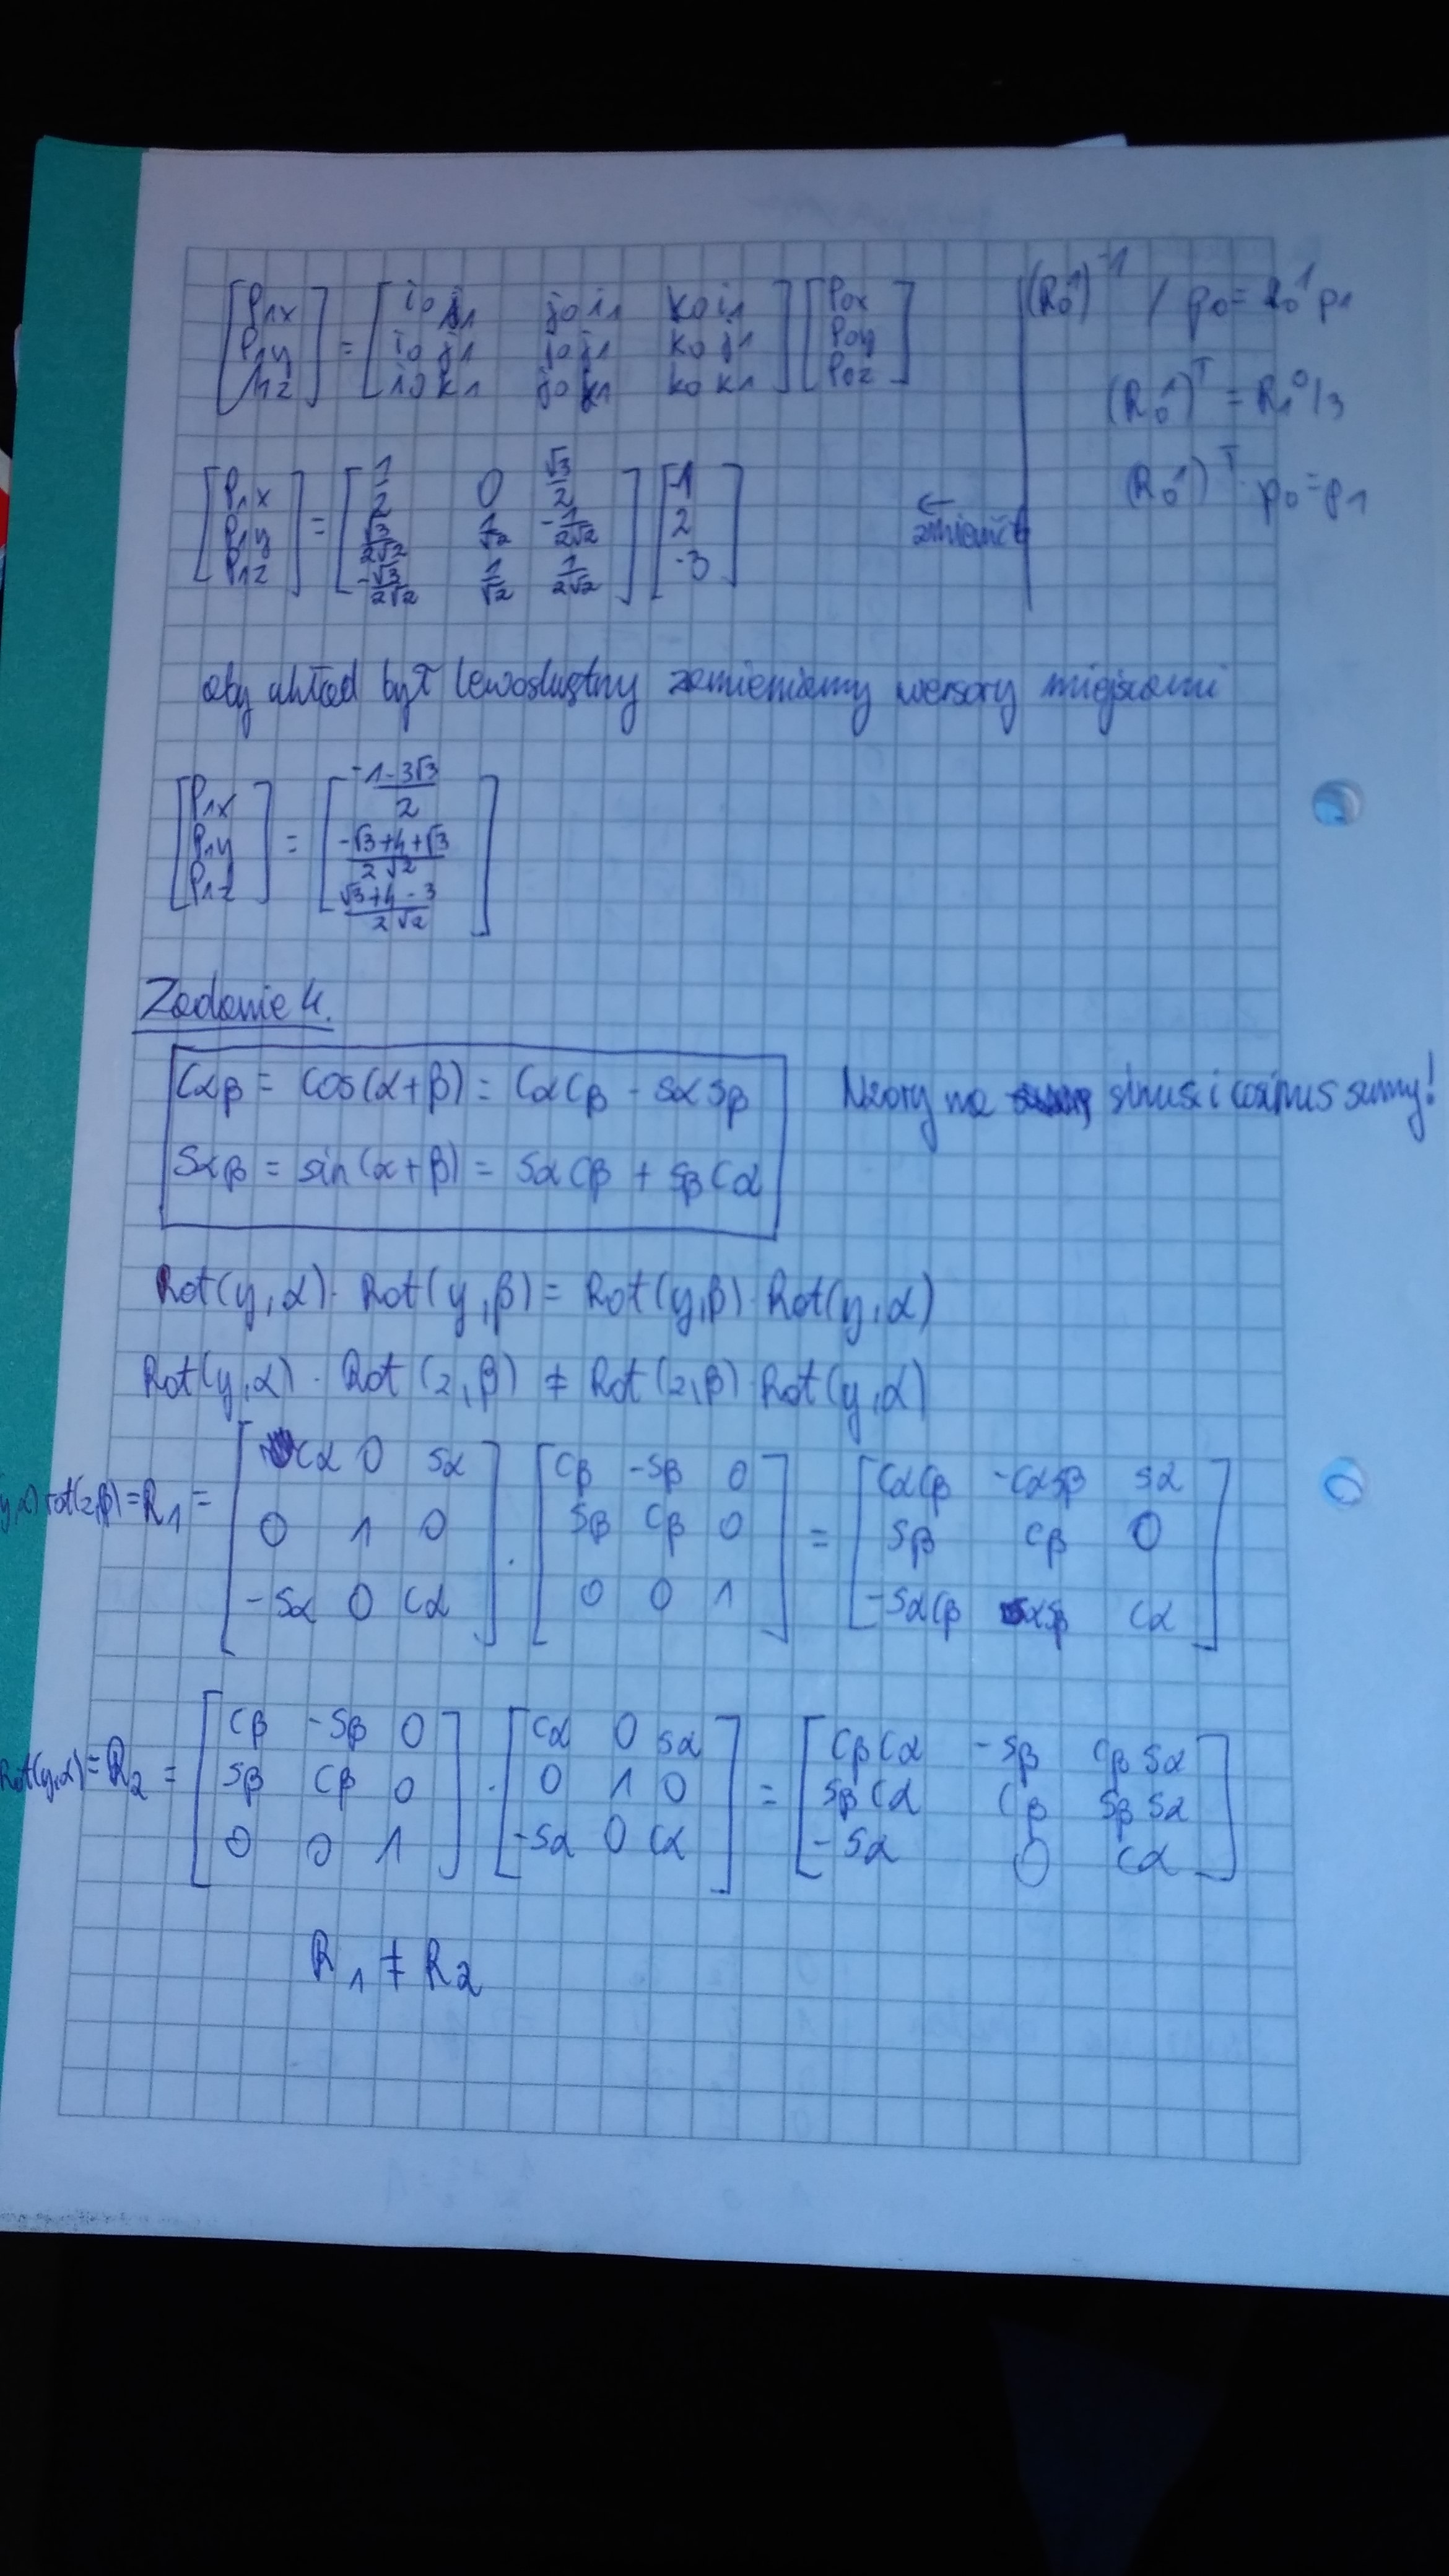 [P1x P1y P1z] = [i0 j1 j0 i1 k0 i1; i0 j1 j0 j1 k0 j1; i0 k1 j0 k1 k0 k1] [P0x P0y P0z]
(R0^1)^-1 / p0 = R0^1 p1
(R0^1)^T = R1^0 /3
(R0^1)^T · p0 = p1
[P1x P1y P1z] = [1/2 0 √3/2; √3/2√2 1/√2 -1/2√2; -√3/2√2 1/√2 1/2√2] [-1 2 -3]
←
zmienić
aby układ był lewoskrętny zamieniamy wersory miejscami
[P1x P1y P1z] = [(-1-3√3)/2; (-√3+4+√3)/2√2; (√3+4-3)/2√2]
Zadanie 4.
Cαβ = cos(α+β) = CαCβ - SαSβ
Wzory na sinus i cosinus sumy!
Sαβ = sin(α+β) = SαCβ + SβCα
Rot(y,α) · Rot(y,β) = Rot(y,β) · Rot(y,α)
Rot(y,α) · Rot(z,β) ≠ Rot(z,β) · Rot(y,α)
y,α) rot(z,β) = R1 = [Cα 0 Sα; 0 1 0; -Sα 0 Cα] · [Cβ -Sβ 0; Sβ Cβ 0; 0 0 1] = [CαCβ -CαSβ Sα; Sβ Cβ 0; -SαCβ SαSβ Cα]
Rot(y,α) = R2 = [Cβ -Sβ 0; Sβ Cβ 0; 0 0 1] · [Cα 0 Sα; 0 1 0; -Sα 0 Cα] = [CβCα -Sβ CβSα; SβCα Cβ SβSα; -Sα 0 Cα]
R1 ≠ R2